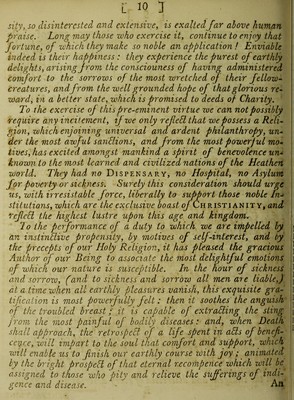 [ 10 ]
sity, so disinterested and extensive, is exalted far above human
praise. Long may those who exercise it, continue to enjoy that
fortune, of which they make so noble an application! Enviable
indeed is their happiness: they experience the purest of earthly
delights, arising from the consciousness of having administered
comfort to the sorrows of the most wretched of their fellow-
creatures, and from the well grounded hope of that glorious re-
ward, in a better state, which is promised to deeds of Charity.
To the exercise of this pre-eminent virtue we can not possibly
require any incitement, if we only reflect that we possess a Reli-
gion, which enjoining universal and ardent philanthropy, un-
der the most awful sanctions, and from the most powerful mo-
tives, has excited amongst mankind a spirit of benevolence un-
known to the most learned and civilized nations of the Heathen
world. They had no DISPENSARY, no Hospital, no Asylum
for poverty or sickness. Surely this consideration should urge
us, with irresistable force, liberally to support those noble In-
stitutions, which are the exclusive boast of CHRISTIANITY, and
reflect the highest lustre upon this age and kingdom.
To the performance of a duty to which we are impelled by
an instinctive propensity, by motives of self-interest, and by
the precepts of our Holy Religion, it has pleased the gracious
Author of our Being to associate the most delightful emotions
of which our nature is susceptible. In the hour of sickness
and sorrow, (and to sickness and sorrow all men are liable,)
at a time when all earthly pleasures vanish, this exquisite gra-
tification is most powerfully felt; then it soothes the anguish
of the troubled breast; it is capable of extracting the sting
from the most painful of bodily diseases: and, when Death
shall approach, the retrospect of a life spent in acts of benefi-
cence, will impart to the soul that comfort and support, which
will enable us to finish our earthly course with joy; animated
by the bright prospect of that eternal recompence which will be
assigned to those who pity and relieve the sufferings of indi-
gence and disease. An